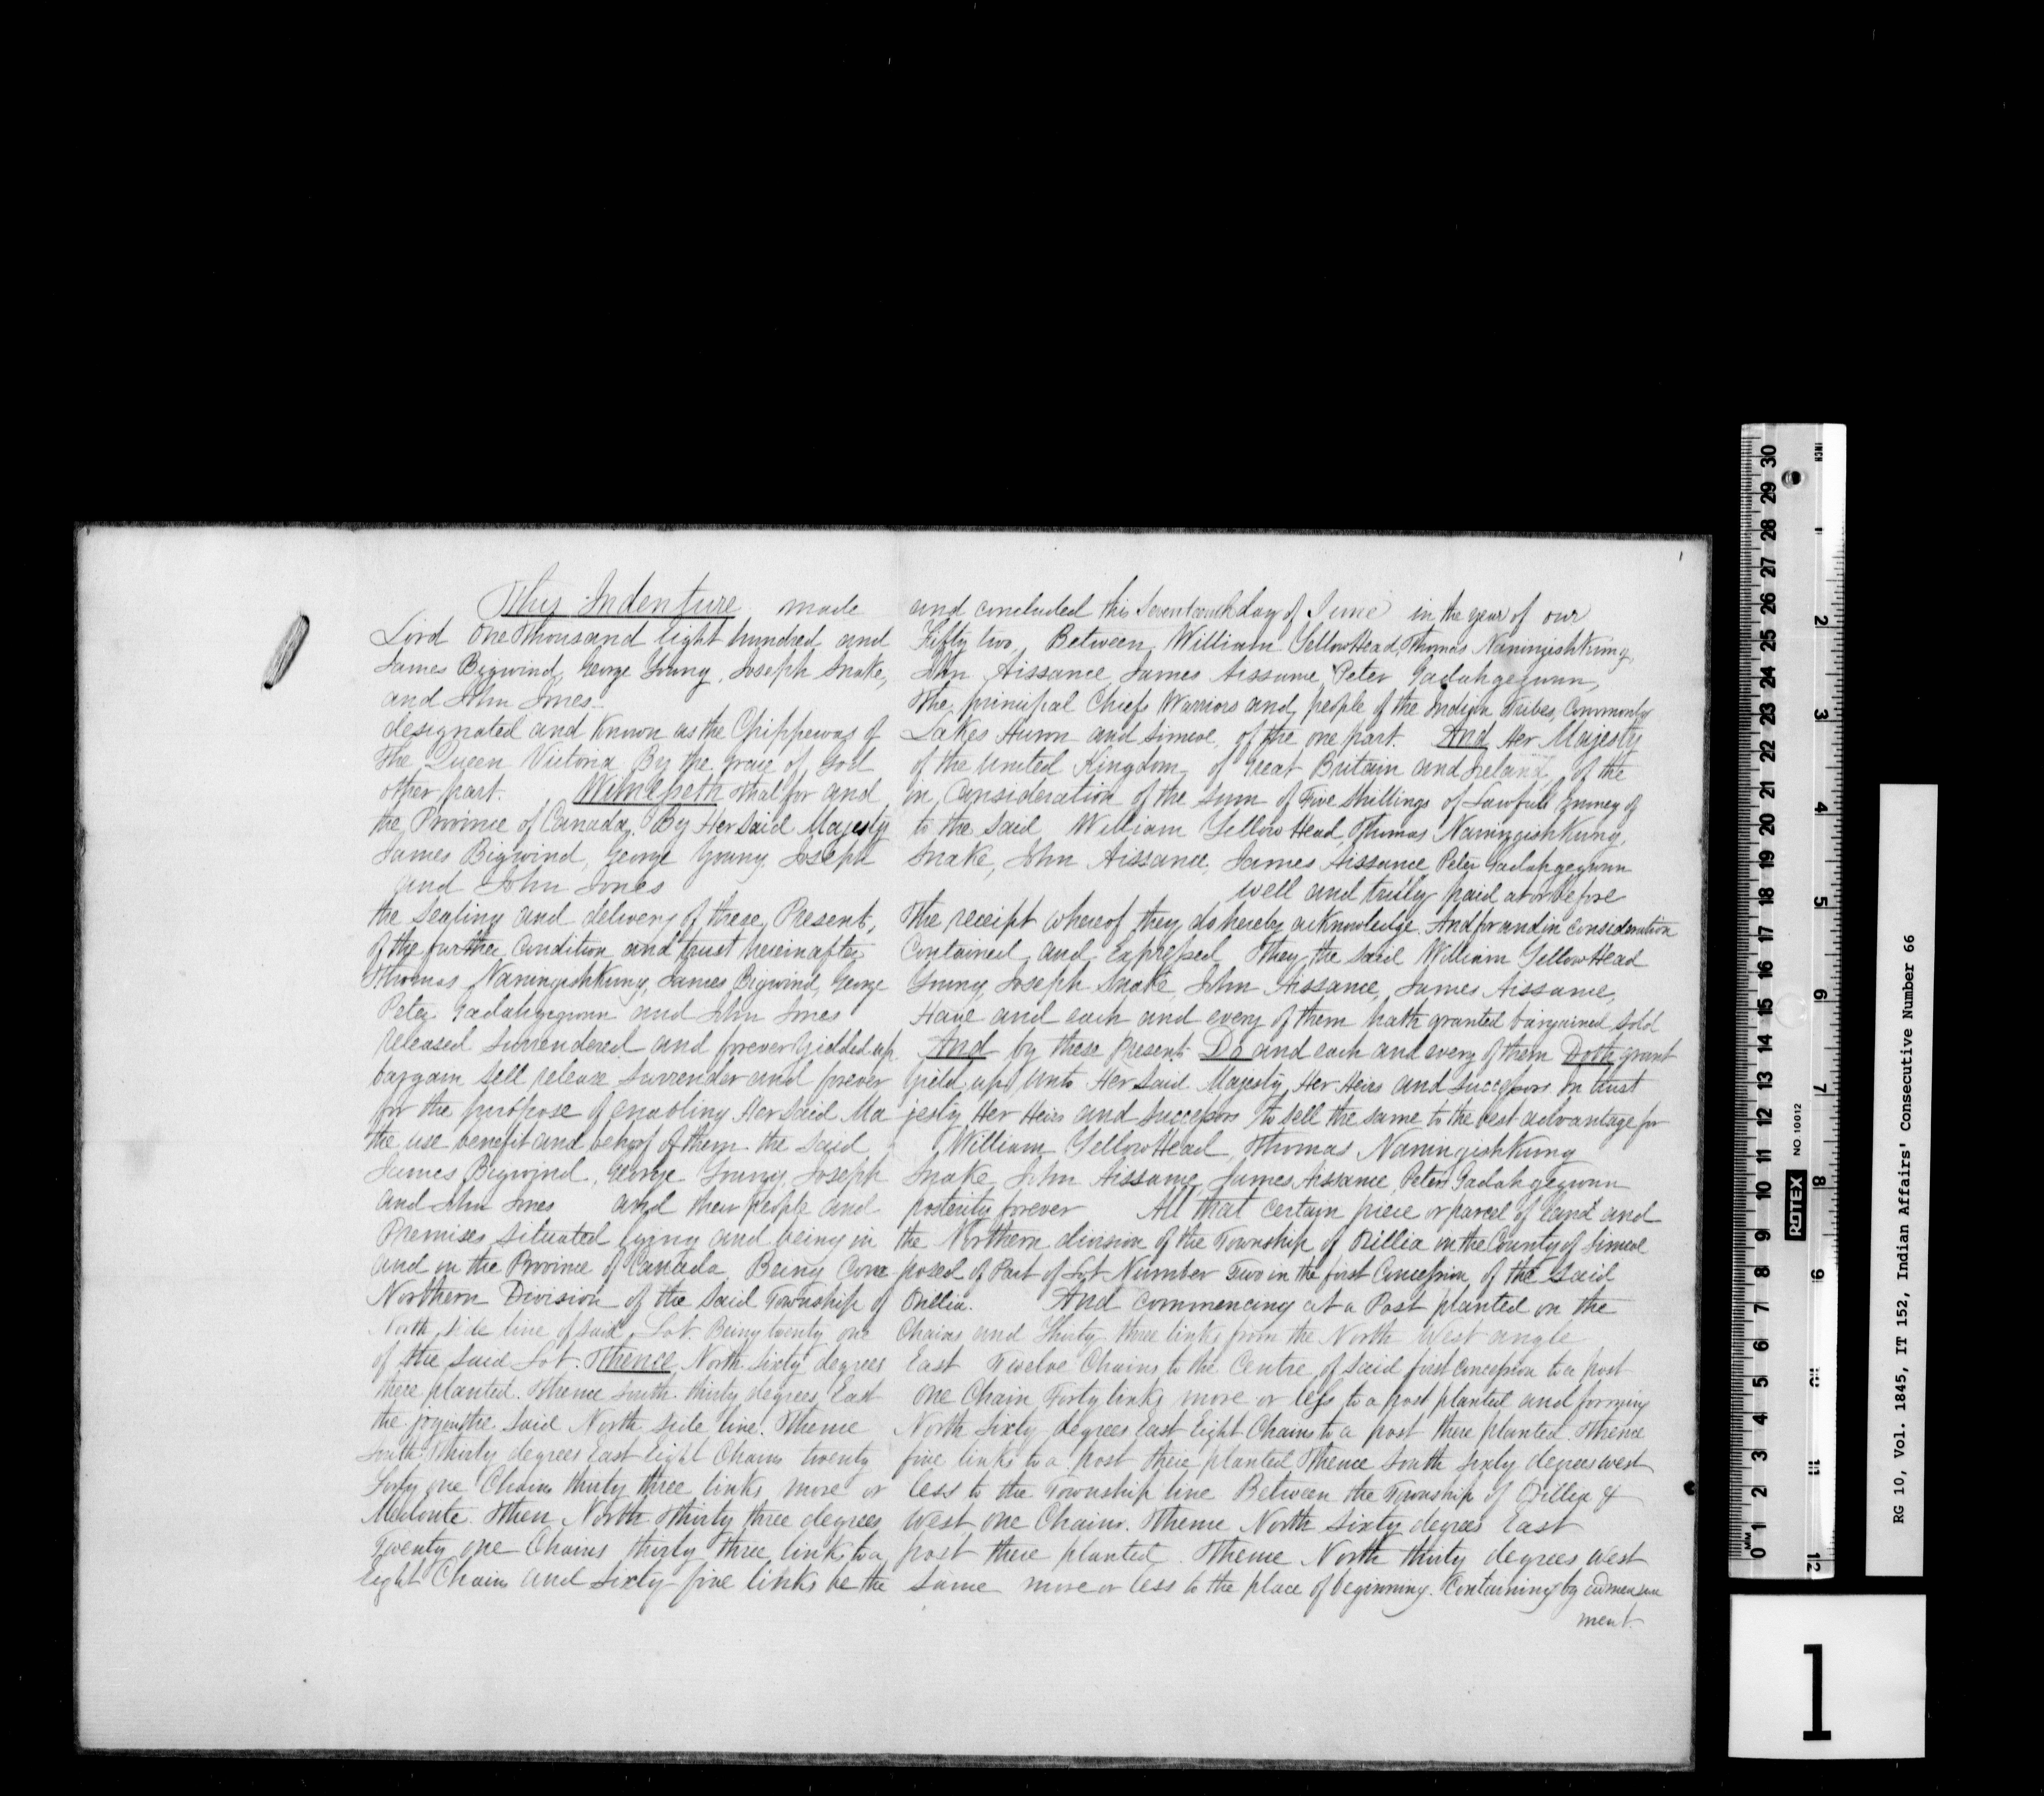 This Indenture made and concluded this Seventeenth day of June in the year of our
Lord One Thousand Eight hundred and Fifty two, Between William YellowHead, Thomas Naningishkung,
James Bigwind, George Young, Joseph Snake, John Aissance, James Aissance, Peter Gadahgegwun,
and John Jones. The principal Chiefs Warriors and people of the Indian Tribes, Commonly
designated and Known as the Chippewas of Lakes Huron and Simcoe, of the one part. And Her Majesty
The Queen Victoria By the grace of God of the United Kingdom of Great Britain and Ireland, of the
other part. Witnesseth That for and in Consideration of the Sum of Five Shillings of Lawfull money of
the Province of Canada, By Her Said Majesty to the Said William YellowHead, Thomas Naningishkung,
James Bigwind, George Young, Joseph Snake, John Aissance, James Aissance Peter Gadahgegwun
and John Jones well and trully paid at or before
the Sealing and delivery of these Present, The receipt whereof they do hereby acknowledge. And for and in consideration
of the further Condition and trust hereinafter Contained and Expressed They the Said William YellowHead
Thomas Naningishkung, James Bigwind, George Young, Joseph Snake, John Aissance, James Aissance,
Peter Gadahgegwun and John Jones Have and each and every of them hath granted bargained sold
released Surrendered and forever Yielded up. And by these Present Do and each and every of them Doth grant
bargain Sell release Surrender and forever Yield up, Unto Her Said Majesty Her Heirs and Successors in trust
for the purpose of enabling Her Said Majesty Her Heirs and Successors to Sell the same to the best advantage for
the use benefit and behoof of them the Said William YellowHead, Thomas Naningishkung
James Bigwind, George Young, Joseph Snake, John Aissance, James Aissance, Peter Gadahgegwun
and John Jones and their people and posterity forever All that Certain piece or parcel of land and
Premises Situated lying and being in the Northern division of the Township of Orillia in the County of Simcoe
and in the Province of Canada. Being Composed of Part of Lot Number Two in the first Concession of the Said
Northern Division of the Said Township of Orillia. And Commencing at a Post planted on the
North Side line of Said Lot Being twenty one Chains and Thirty three links from the North West angle
of the Said Lot. Thence North Sixty degrees East Twelve Chains to the Centre of Said first Concession to a post
there planted. Thence South thirty degrees East One Chain Forty links more or less to a post planted and forming
the the Said North Side line. Thence North Sixty degrees East Eight Chains to a post there planted. Thence
South Thirty degrees East Eight Chains twenty five links to a post there planted Thence South Sixty degrees west
Forty one Chains thirty three links more or less to the Township line Between the Township of Orillia &
Medonte. Then North thirty three degrees West one Chains. Thence North Sixty degrees East
Twenty one Chains thirty three links to a post there planted. Thence North thirty degrees West
Eight Chains and Sixty five links be the Same more or less to the place of beginning. Containing by admeasure
ment.
1
RG 10, Vol. 1845, IT 152, Indian Affairs' Consecutive Number 66
INCH
1 2 3 4 5 6 7 8 9 10 11 12
MM
0 1 2 3 4 5 6 7 8 9 10 11 12 13 14 15 16 17 18 19 20 21 22 23 24 25 26 27 28 29 30
ROTEX
NO 10012
1